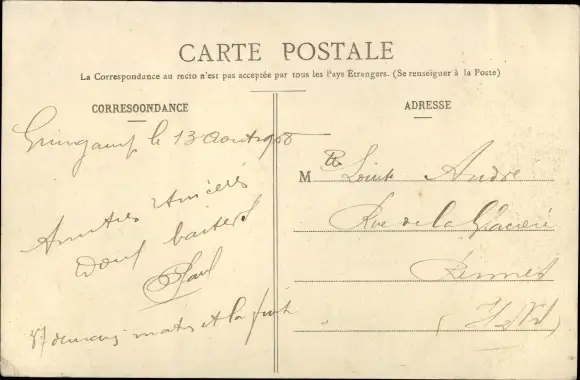 CARTE POSTALE
La Correspondance au recto n'est pas acceptée par tous les Pays Étrangers. (Se renseigner à la Poste)
CORRESOONDANCE
Guingamp le 13 Aout 1908
Amitiés sincères
doux baisers
Paul
37 demain matin et la fuit
ADRESSE
M lle Louise André
Rue de la Glacière
Rennes
(I et V)